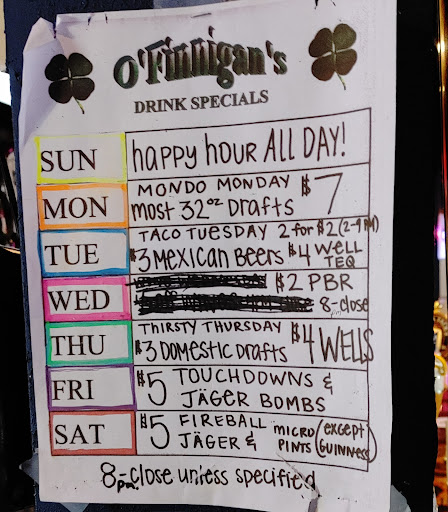 O'Finnigan's
DRINK SPECIALS
SUN happy HOUR ALL DAY!
MON MONDO MONDAY $7
most 32oz Drafts
TUE TACO TUESDAY 2 for $2 (2-9PM)
$3 MEXICAN BEERS $4 WELL TEQ
WED $2 PBR
8-close
THU THIRSTY THURSDAY $4 WELLS
$3 DOMESTIC DRAFTS
FRI $5 TOUCHDOWNS &
JÄGER BOMBS
SAT $5 FIREBALL
JÄGER & MICRO PINTS (except GUINNESS)
8pm-close unless specified